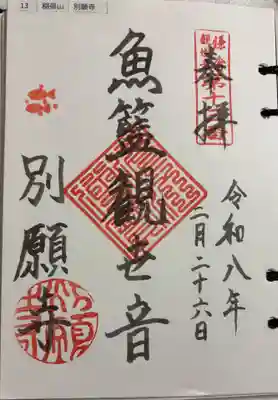 13 稲荷山 別願寺
奉拝
令和八年
二月二十六日
魚籃観世音
別願寺